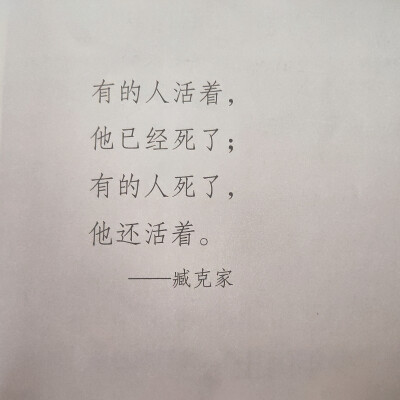 有的人活着，
他已经死了；
有的人死了，
他还活着。
——臧克家